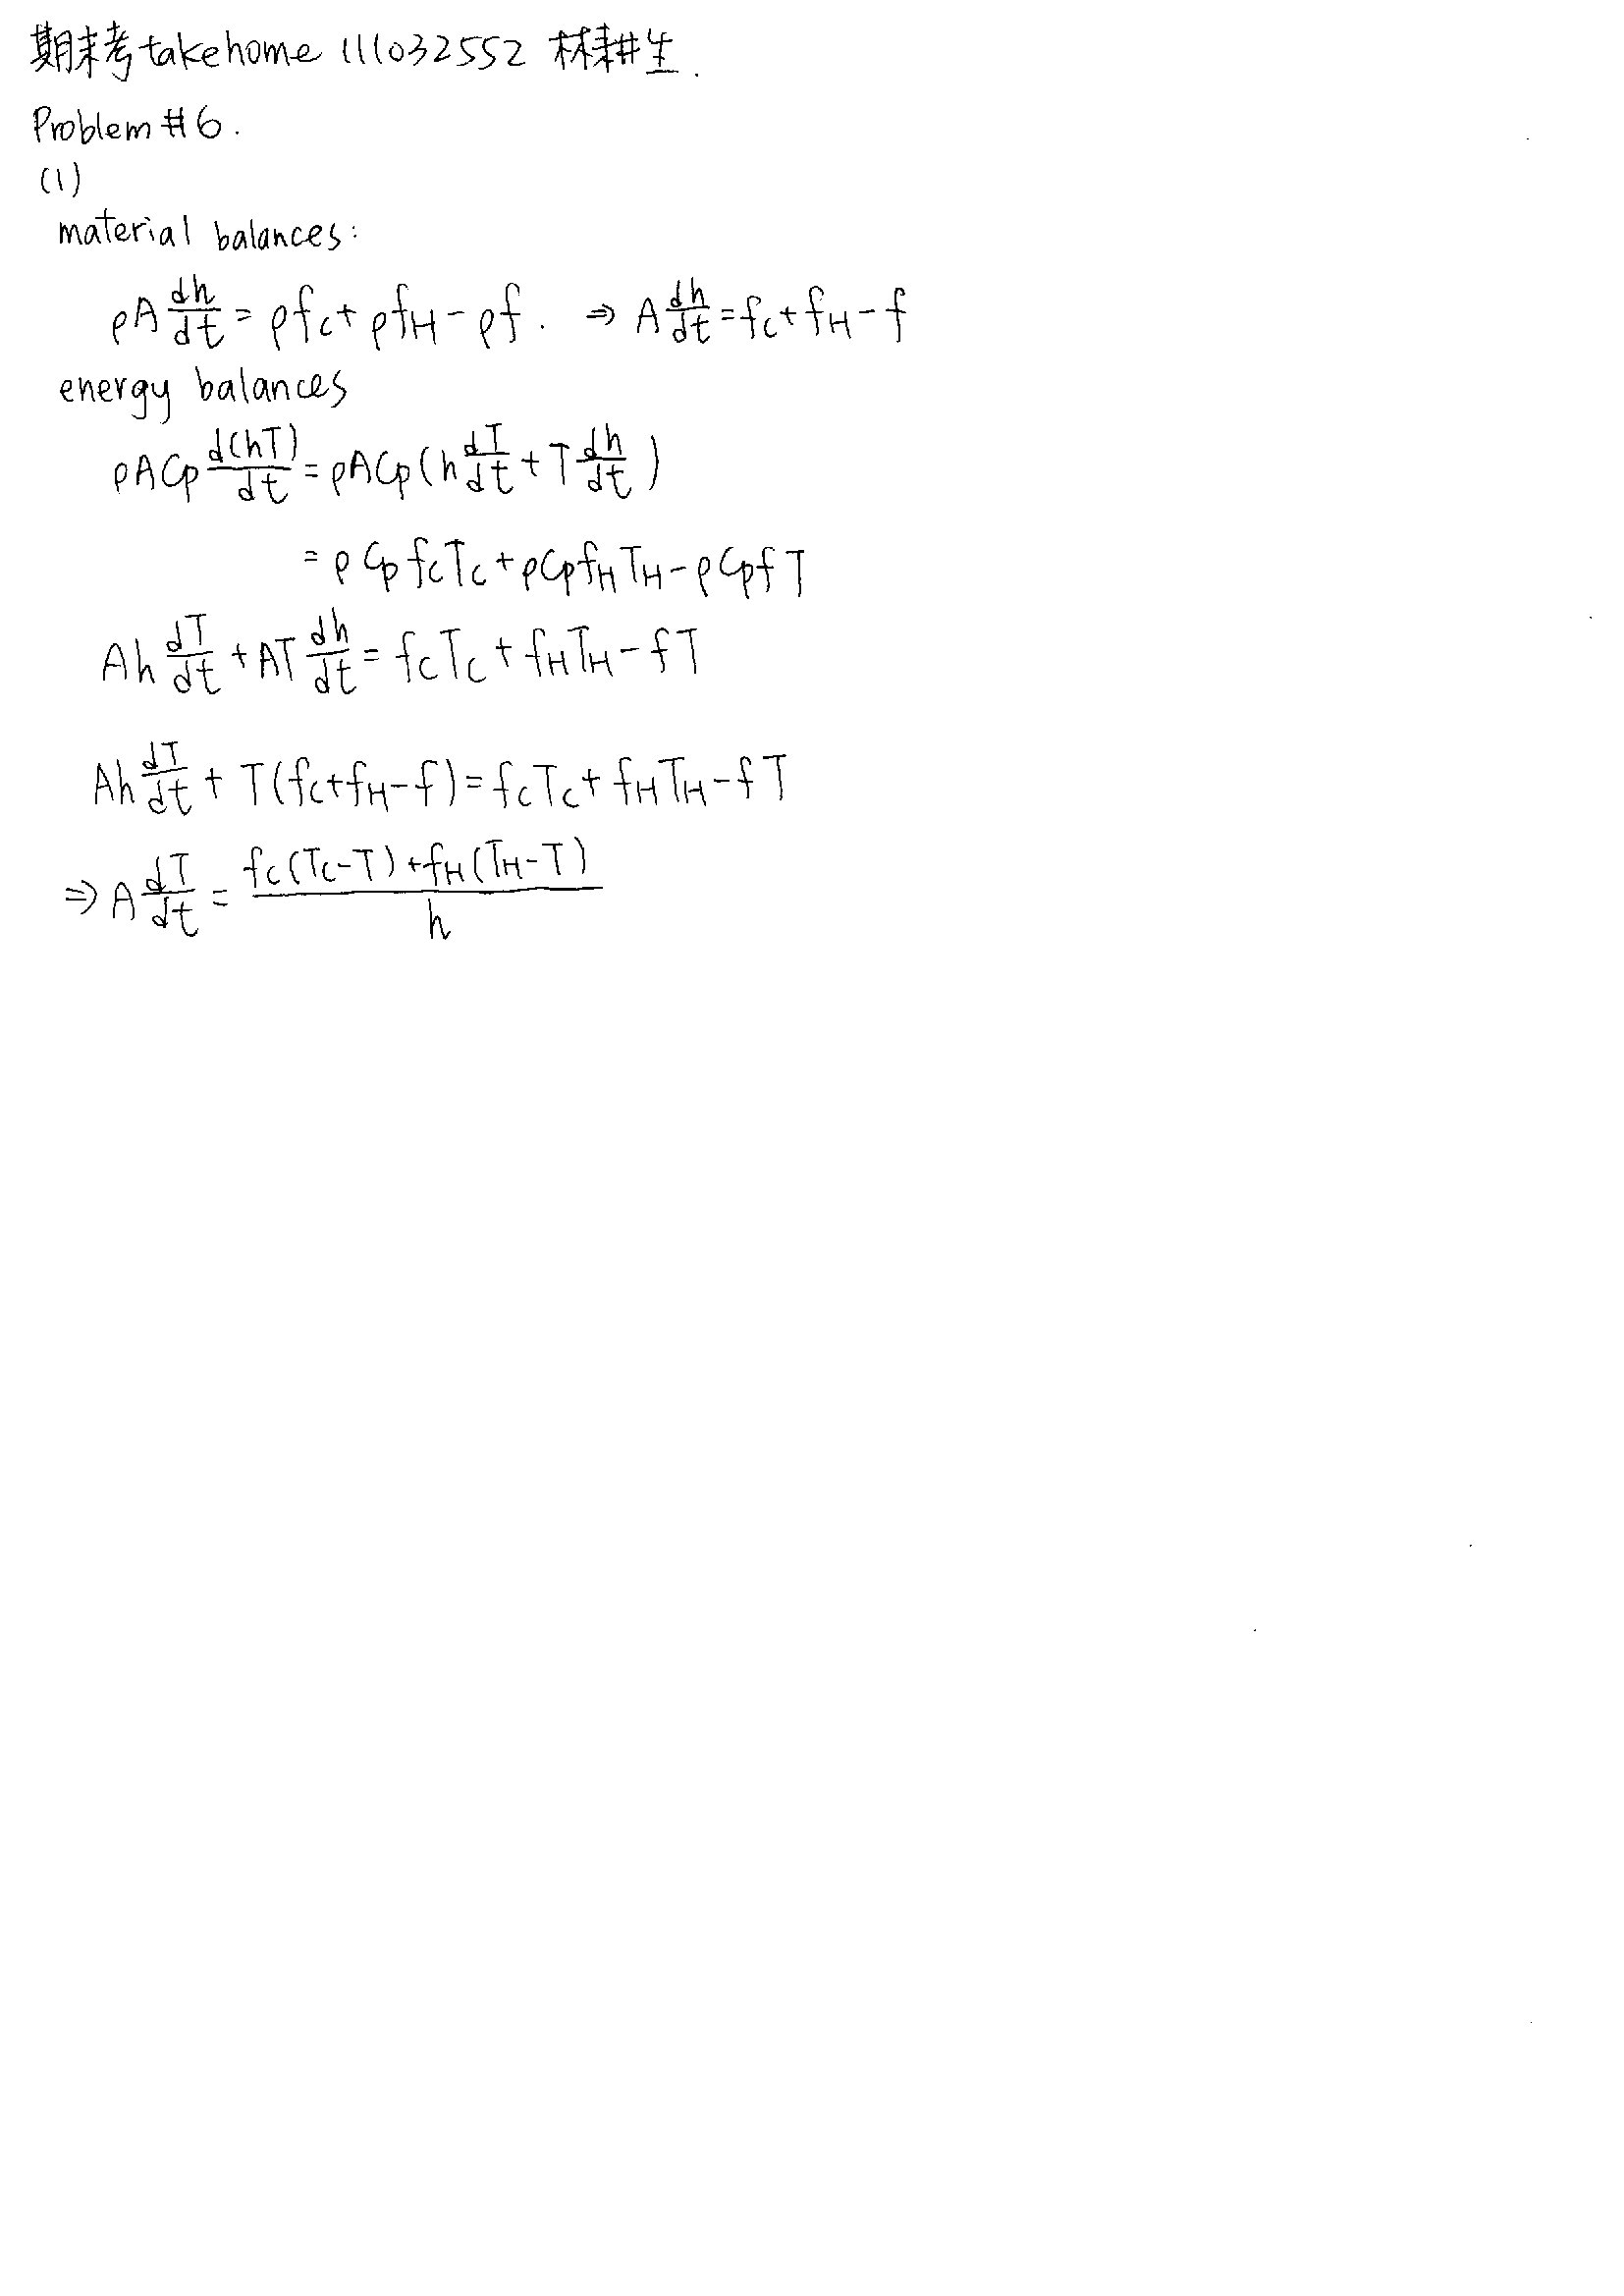 期末考takehome 111032552 林耕生.
Problem #6.
(1)
material balances:
ρA dh/dt = ρfc + ρfH - ρf. ⇒ A dh/dt = fc + fH - f
energy balances
ρACp d(hT)/dt = ρACp(h dT/dt + T dh/dt)
= ρCpfcTc + ρCpfHTH - ρCpfT
Ah dT/dt + AT dh/dt = fcTc + fHTH - fT
Ah dT/dt + T(fc+fH-f) = fcTc + fHTH - fT
⇒ A dT/dt = fc(Tc-T)+fH(TH-T) / h